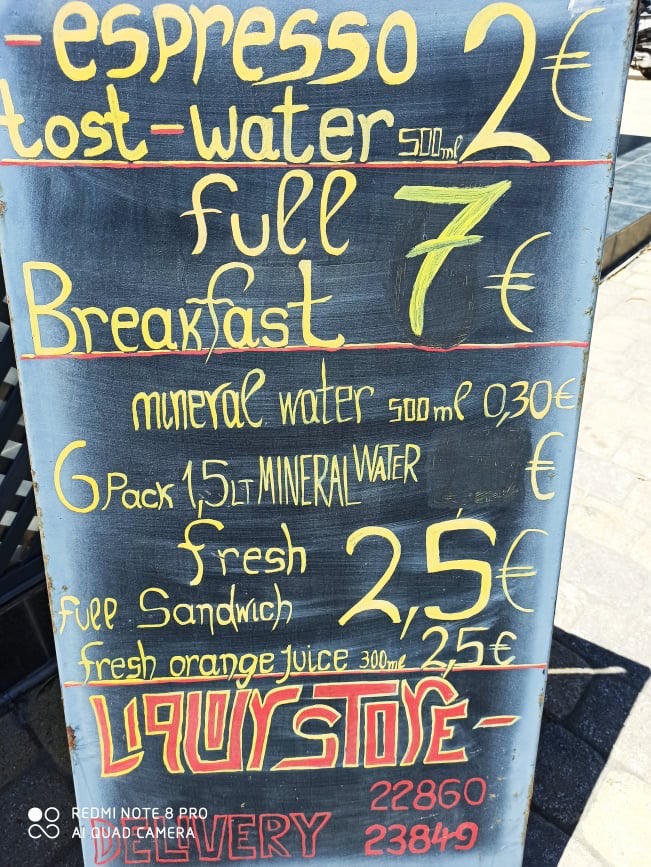 -espresso 2€
tost-water 500ml
full 7€
Breakfast
mineral water 500ml 0,30€
6 Pack 1,5LT MINERAL WATER €
fresh 2,5€
full Sandwich
fresh orange juice 300ml 2,5€
LIQUOR STORE-
22860
DELIVERY 23849
REDMI NOTE 8 PRO
AI QUAD CAMERA